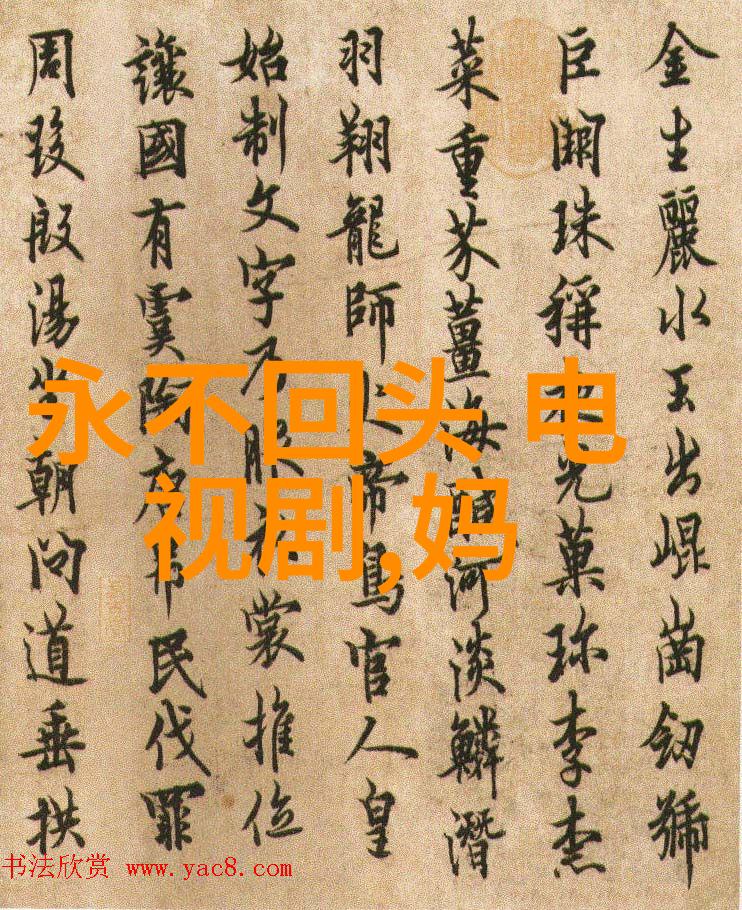 金生麗水玉出崐崗釼號
巨闕珠稱夜光菓珎李柰
菜重芥薑海醎河淡鱗潛
羽翔龍師火帝鳥官人皇
始制文字乃服衣裳推位
讓國有虞陶唐弔民伐罪
周發殷湯坐朝問道垂拱
永不回头 电
视剧,妈
书法欣赏 www.yac8.com